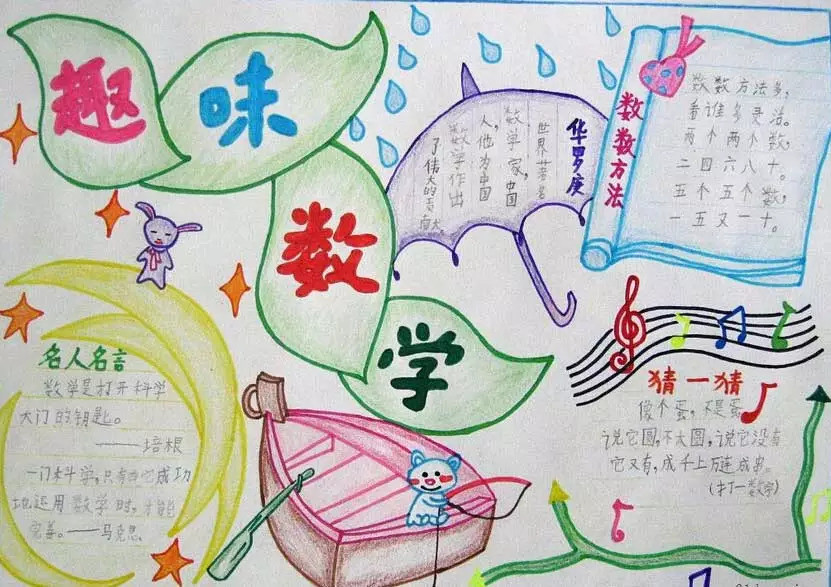 趣味数学
华罗庚
世界著名
数学家，中国
人，他为中国
数学作出
了伟大的贡献。
数数方法
数数方法多，
看谁多灵活。
两个两个数，
二四六八十。
五个五个数，
一五又一十。
名人名言
数学是打开科学
大门的钥匙。
——培根
一门科学，只有当它成功
地运用数学时，才能
完善。——马克思
猜一猜
像个蛋，不是蛋
说它圆，不太圆，说它没有
它又有，成千上万连成串。
（打一数字）